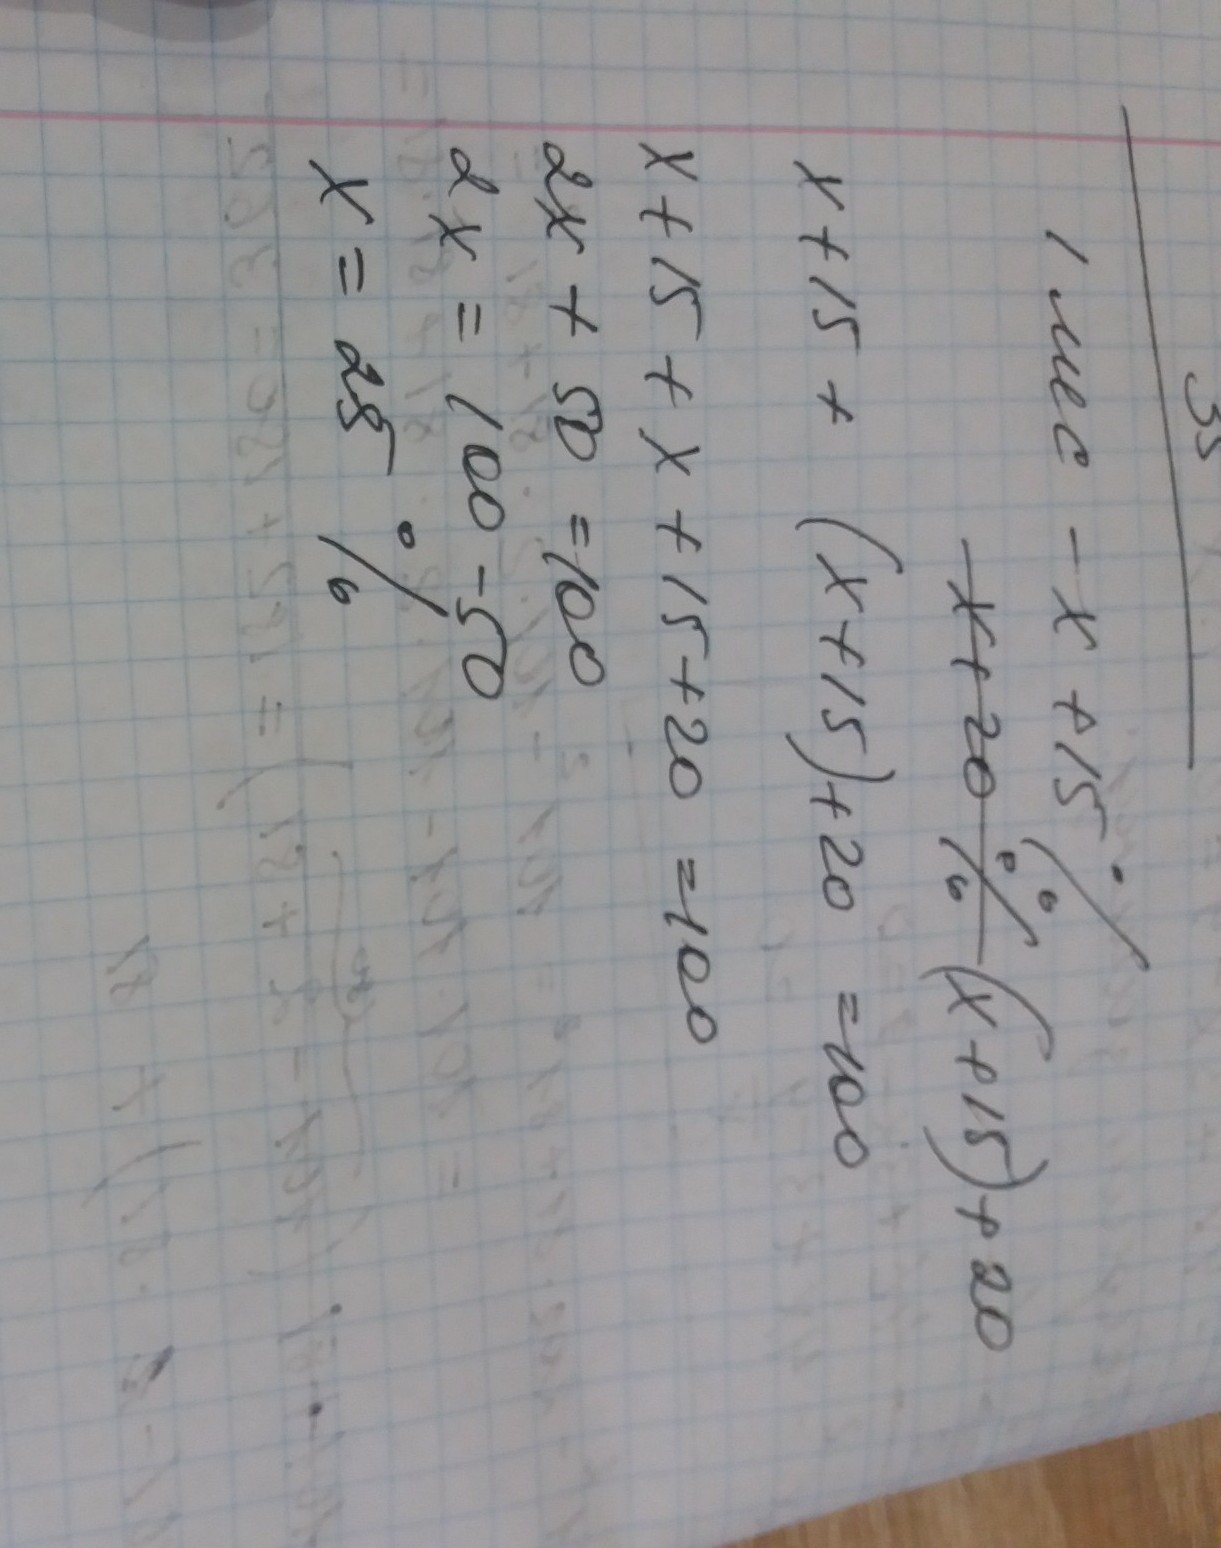 35
1 мес - x + 15 %
x + 20 % (x + 15) + 20
x + 15 + (x + 15) + 20 = 100
x + 15 + x + 15 + 20 = 100
2x + 50 = 100
2x = 100 - 50
x = 25 %